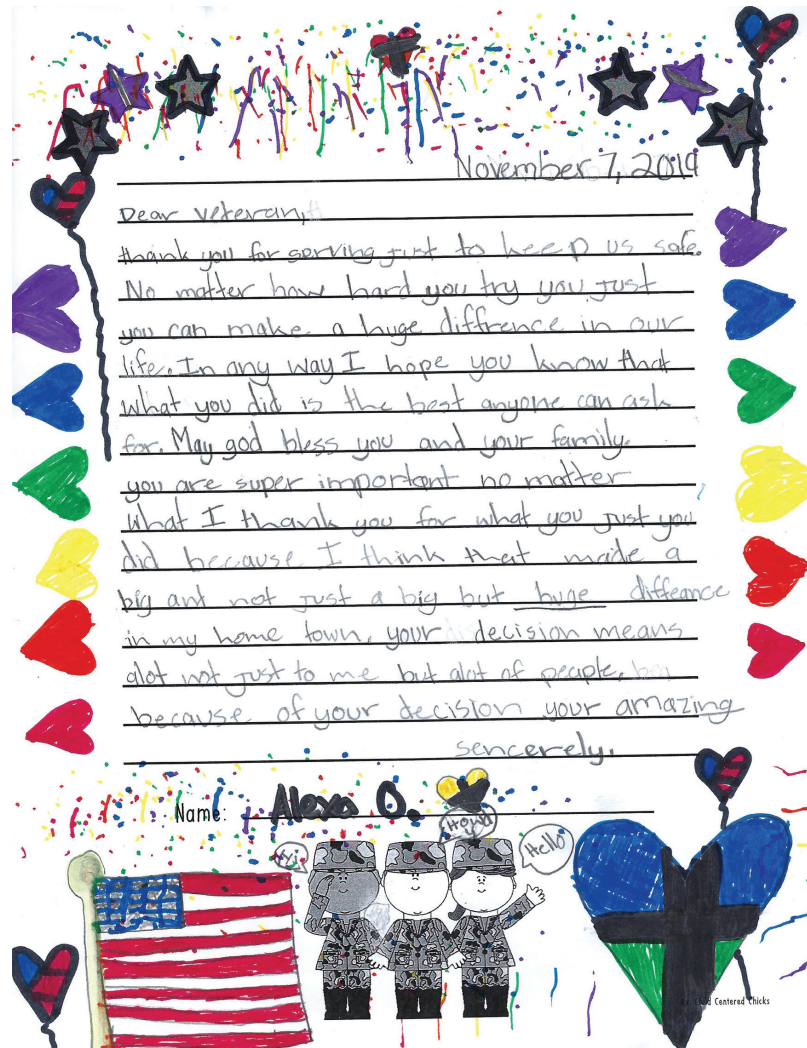 November 7, 2019
Dear veteran,
thank you for serving just to keep us safe.
No matter how hard you try you just
you can make a huge diffrence in our
life. In any way I hope you know that
what you did is the best anyone can ask
for. May god bless you and your family.
you are super important no matter
what I thank you for what you just you
did because I think that made a
big ant not just a big but huge diffeance
in my home town. your decision means
alot not just to me but alot of people.
because of your decision your amazing
sencerely,
Name: Alexa O.
Hy!
Howdy
Hello
Child Centered Chicks